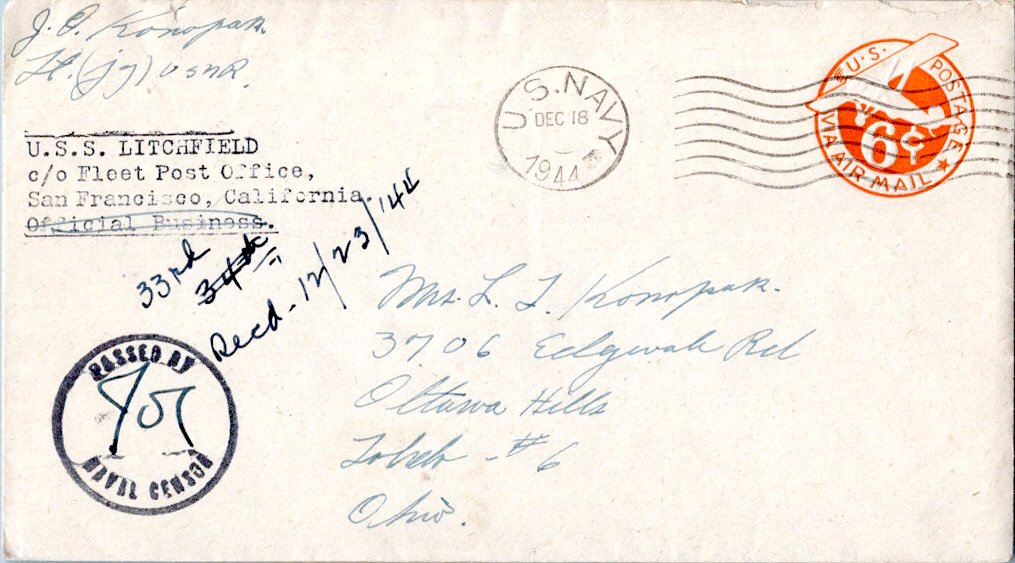 J. O. Konopak.
Lt. (jg) USNR.
U.S.S. LITCHFIELD
c/o Fleet Post Office,
San Francisco, California.
Official Business.
U.S. NAVY
DEC 18
1944
U.S. POSTAGE
6¢
VIA AIR MAIL
33rd
34th
Recd - 12/23/144
PASSED BY
NAVAL CENSOR
Mrs. L. T. Konopak.
3706 Edgevale Rd
Ottawa Hills
Toledo - #6
Ohio.